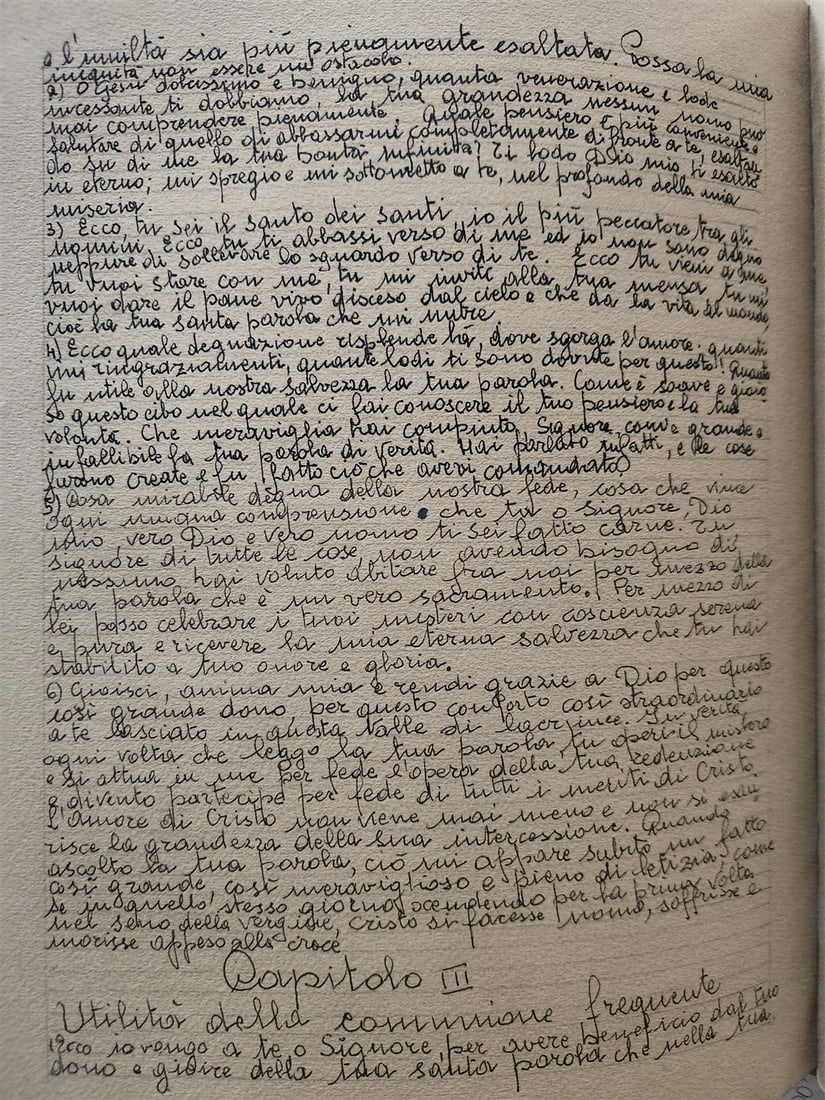 e l'umiltà sia più pienamente esaltata. Possa la mia
iniquità non essere un ostacolo.
2) O Gesù dolcissimo e benigno, quanta venerazione e lode
incessante ti dobbiamo, la tua grandezza nessun uomo può
mai comprendere pienamente. Quale pensiero è più conveniente e
salutare di quello di abbassarmi completamente di fronte a te, esaltan
do su di me la tua bontà infinita? Ti lodo Dio mio, ti esalto
in eterno; mi spregio e mi sottometto a te, nel profondo della mia
miseria.
3) Ecco, tu sei il santo dei santi, io il più peccatore tra gli
uomini. Ecco tu ti abbassi verso di me ed io non sono degno
neppure di sollevare lo sguardo verso di te. Ecco tu vieni a me
tu vuoi stare con me, tu mi inviti alla tua mensa tu mi
vuoi dare il pane vivo disceso dal cielo e che da la vita al mondo,
cioè la tua santa parola che mi nutre.
4) Ecco quale degnazione risplende là, dove sgorga l'amore. quanti
ringraziamenti, quante lodi ti sono dovute per questo! Quanto
fu utile alla nostra salvezza la tua parola. Come è soave e gioio
so questo cibo nel quale ci fai conoscere il tuo pensiero e la tua
volontà. Che meraviglia hai compiuto Signore, com'è grande e
infallibile la tua parola di verità. Hai parlato infatti, e le cose
furono create e fu fatto ciò che avevi comandato
5) Cosa mirabile degna della nostra fede, cosa che vince
ogni umana comprensione che tu o Signore, Dio
mio, vero Dio e vero uomo ti sei fatto carne. Tu
signore di tutte le cose, non avendo bisogno di
nessuno, hai voluto abitare fra noi per mezzo della
tua parola che è un vero sacramento. Per mezzo di
lei posso celebrare i tuoi misteri con coscienza serena
e pura e ricevere la mia eterna salvezza che tu hai
stabilito a tuo onore e gloria.
6) Gioisci, anima mia e rendi grazie a Dio per questo
così grande dono, per questo conforto così straordinario
a te lasciato in questa valle di lacrime. In verità,
ogni volta che leggo la tua parola, tu operi il mistero
e si attua in me per fede l'opera della tua redenzione
e divento partecipe per fede di tutti i meriti di Cristo
l'amore di Cristo non viene mai meno e non si esau
risce la grandezza della sua intercessione. Quando
ascolto la tua parola, ciò mi appare subito un fatto
così grande, così meraviglioso e pieno di letizia, come
se in quello stesso giorno, scendendo per la prima volta
nel seno della vergine, Cristo si facesse uomo, soffrisse e
morisse appeso alla croce
Capitolo III
Utilità della comunione frequente
1) Ecco io vengo a te, o Signore, per avere beneficio dal tuo
dono e gioire della tua santa parola che nella tua